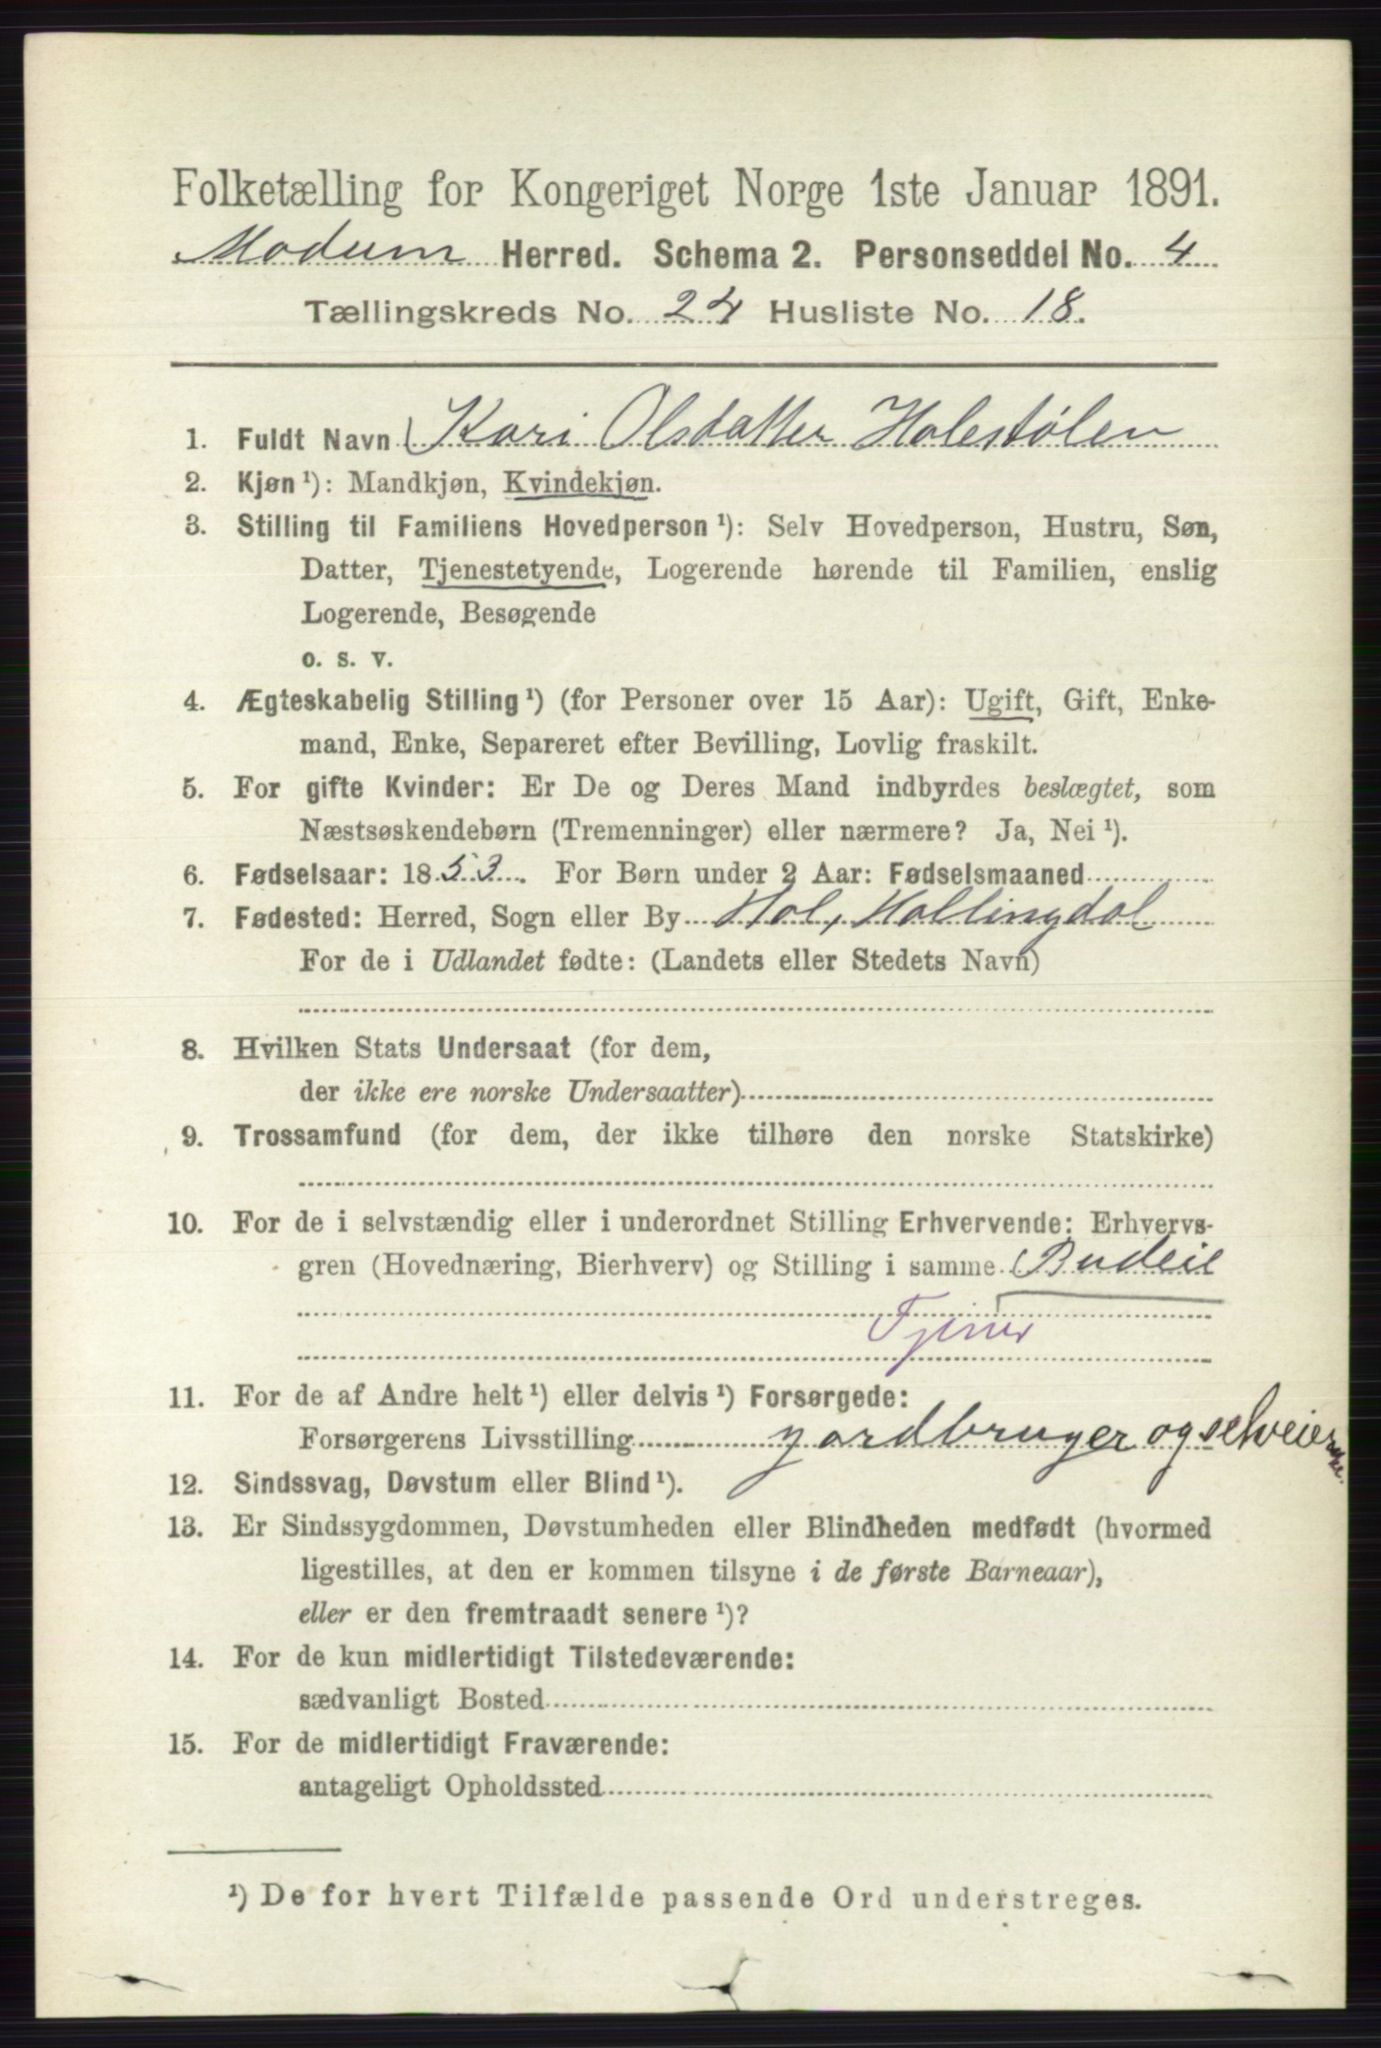 Folketælling for Kongeriget Norge 1ste Januar 1891.
Modum Herred. Schema 2. Personseddel No. 4
Tællingskreds No. 24 Husliste No. 18.
1. Fuldt Navn Kari Olsdatter Holestølen
2. Kjøn ¹): Mandkjøn, Kvindekjøn.
3. Stilling til Familiens Hovedperson ¹): Selv Hovedperson, Hustru, Søn,
Datter, Tjenestetyende, Logerende hørende til Familien, enslig
Logerende, Besøgende
o. s. v.
4. Ægteskabelig Stilling ¹) (for Personer over 15 Aar): Ugift, Gift, Enke-
mand, Enke, Separeret efter Bevilling, Lovlig fraskilt.
5. For gifte Kvinder: Er De og Deres Mand indbyrdes beslægtet, som
Næstsøskendebørn (Tremenninger) eller nærmere? Ja, Nei ¹).
6. Fødselsaar: 1853. For Børn under 2 Aar: Fødselsmaaned
7. Fødested: Herred, Sogn eller By Hol, Hallingdal
For de i Udlandet fødte: (Landets eller Stedets Navn)
8. Hvilken Stats Undersaat (for dem,
der ikke ere norske Undersaatter)
9. Trossamfund (for dem, der ikke tilhøre den norske Statskirke)
10. For de i selvstændig eller i underordnet Stilling Erhvervende: Erhvervs-
gren (Hovednæring, Bierhverv) og Stilling i samme Budeie
11. For de af Andre helt ¹) eller delvis ¹) Forsørgede:
Forsørgerens Livsstilling gardbruger og selveier
12. Sindssvag, Døvstum eller Blind ¹).
13. Er Sindssygdommen, Døvstumheden eller Blindheden medfødt (hvormed
ligestilles, at den er kommen tilsyne i de første Barneaar),
eller er den fremtraadt senere ¹)?
14. For de kun midlertidigt Tilstedeværende:
sædvanligt Bosted
15. For de midlertidigt Fraværende:
antageligt Opholdssted
¹) De for hvert Tilfælde passende Ord understreges.